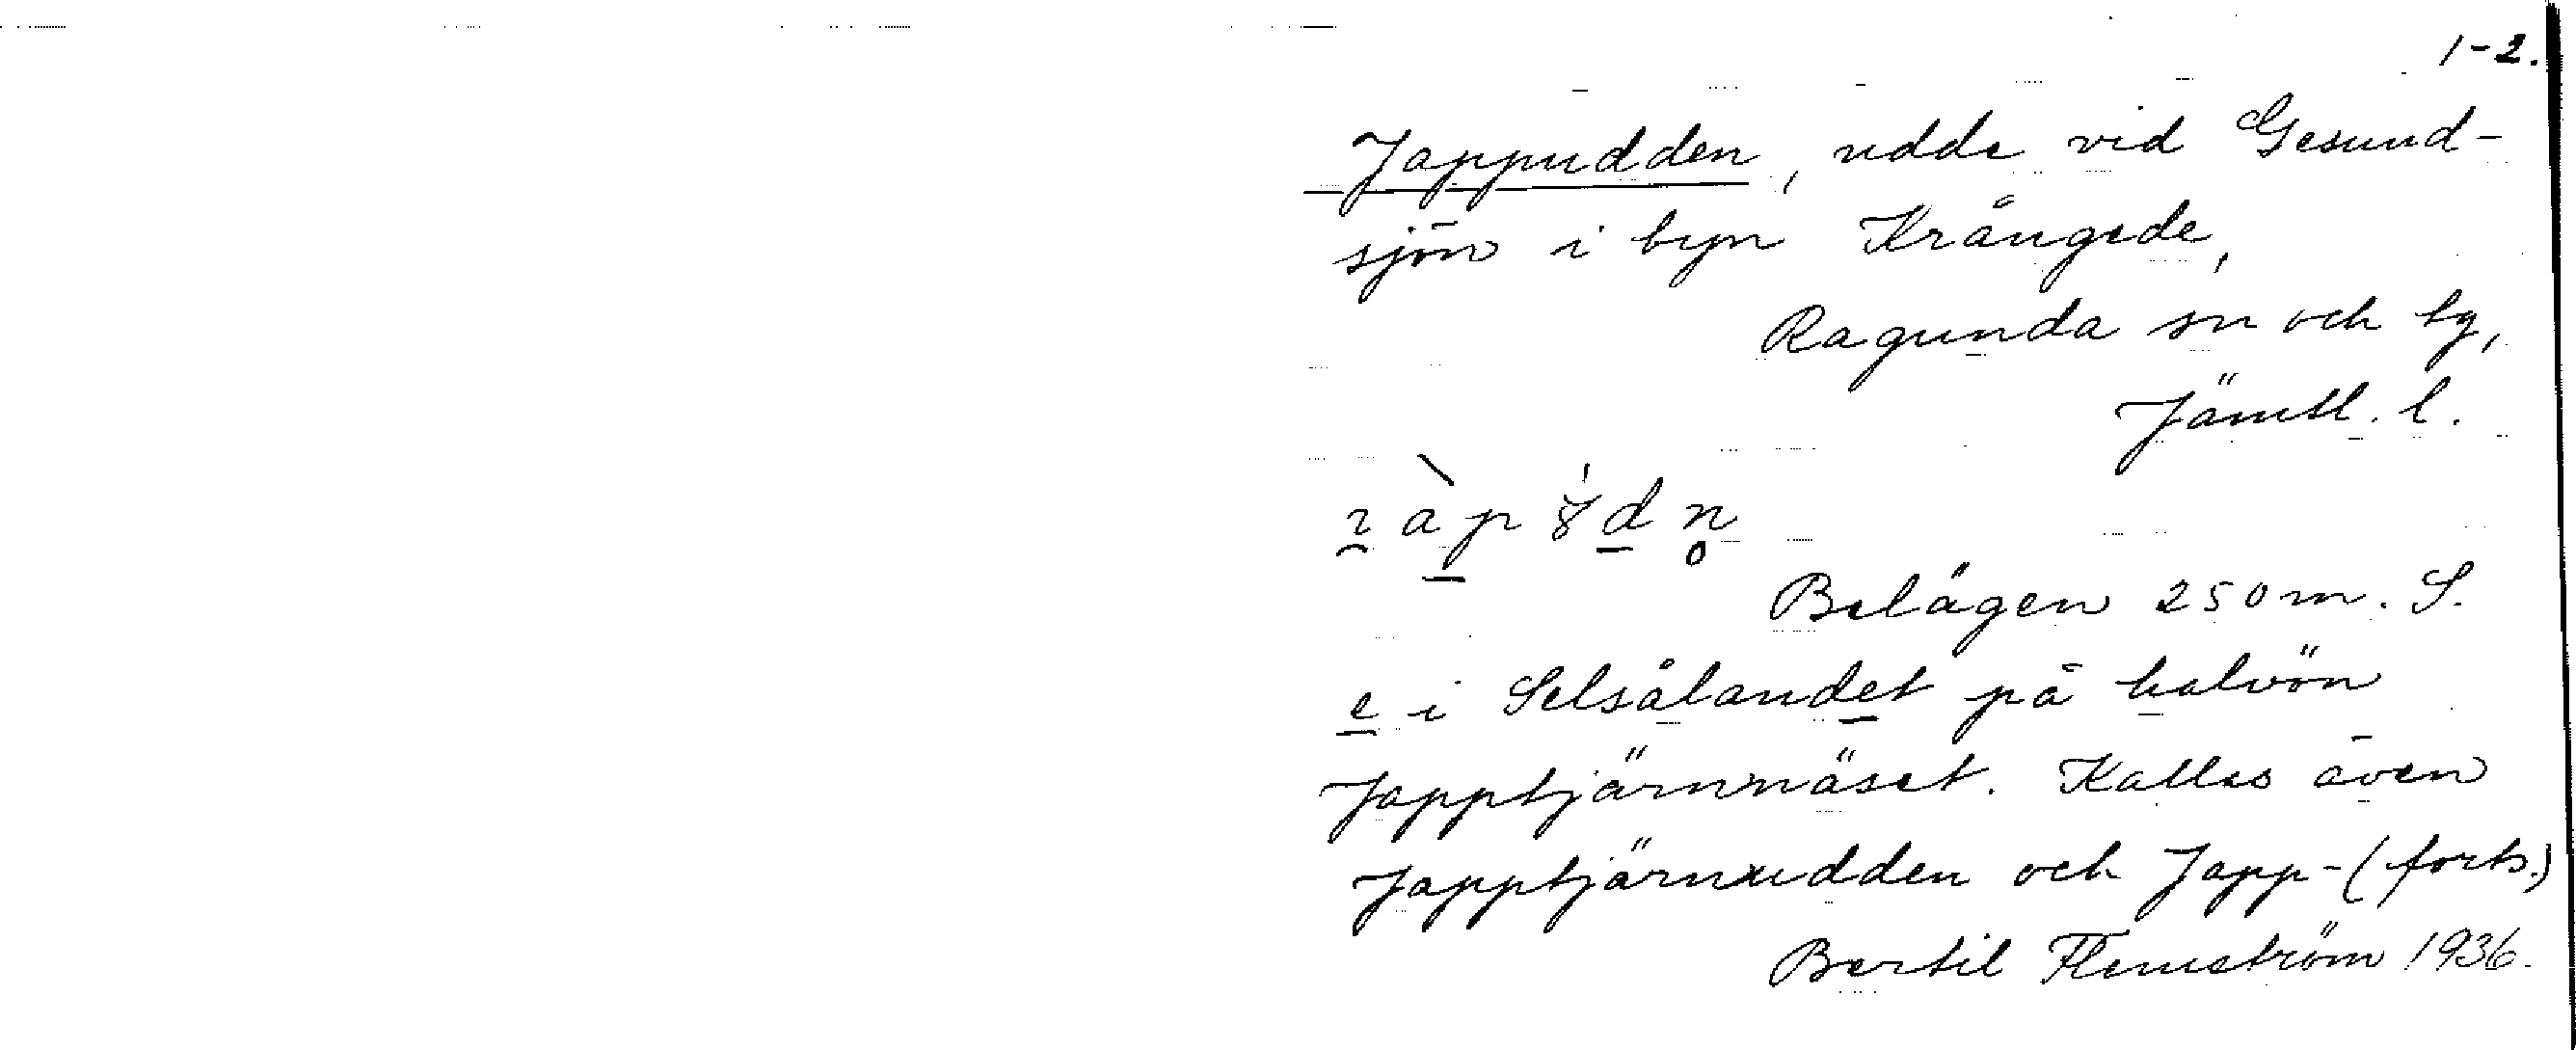 1-2.
Jappudden, udde vid Gesund-
sjön i byn Krångede,
Ragunda sn och tg,
Jämtl. l.
Belägen 250 m. S.
e i Selsålandet på halvön
Japptjärnnäset. Kallas även
Japptjärnudden och Japp- (forts.)
Bertil Flemström 1936.